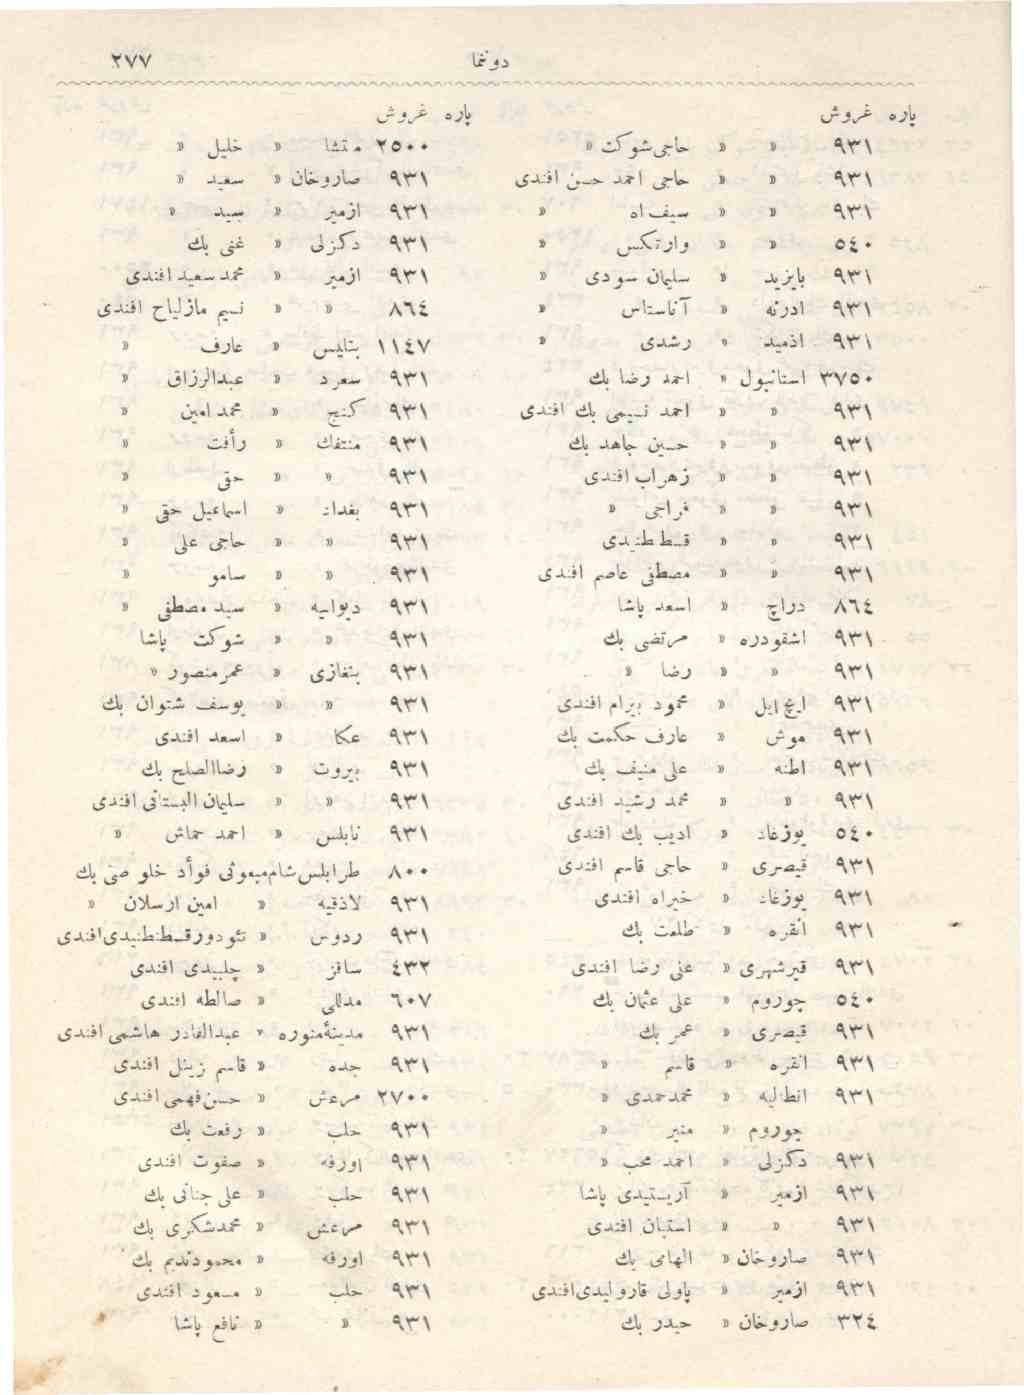 دونما ٢٧٧
پاره غروش
٩٣١ » » حاجی شوکت »
٩٣١ » » حاجی احمد حسن افندی
٩٣١ » » سیف اه »
٥٤٠ » » وارتکس »
٩٣١ بایزید » سلیمان سودی »
٩٣١ ادرنه » آناستاس »
٩٣١ اذمید » رشدی »
٣٧٥٠ استانبول » احمد رضا بك
٩٣١ » » احمد نسیمی بك افندی
٩٣١ » » حسین جاهد بك
٩٣١ » » زهراب افندی
٩٣١ » » فراجی »
٩٣١ » » قسطنطنیدی
٩٣١ » » مصطفی عاصم افندی
٨٦٤ دراج » اسعد پاشا
٩٣١ اشقودره » مرتضی بك
٩٣١ » » رضا »
٩٣١ ایچ ایل » محمود بیرام افندی
٩٣١ موش » عارف حکمت بك
٩٣١ اطنه » علی منیف بك
٩٣١ » » محمد رشید افندی
٥٤٠ یوزغاد » ادیب بك افندی
٩٣١ قیصری » حاجی قاسم افندی
٩٣١ یوزغاد » خیراه افندی
٩٣١ انقره » طلعت بك
٩٣١ قیرشهری » علی رضا افندی
٥٤٠ چوروم » علی عثمان بك
٩٣١ قیصری » عمر بك
٩٣١ انقره » قاسم »
٩٣١ انطالیه » محمد حمدی »
چوروم » منیر »
٩٣١ دکزلی » احمد محب »
٩٣١ ازمیر » آریستیدی پاشا
٩٣١ » » استپان افندی
٩٣١ صاروخان » الهامی بك
٩٣١ ازمیر » پاولی قارولیدی افندی
٣٢٤ صاروخان » حیدر بك
پاره غروش
٢٥٠٠ منتشا » خلیل »
٩٣١ صاروخان » سعید »
٩٣١ ازمیر » سید »
٩٣١ دکزلی » غنی بك
٩٣١ ازمیر » محمد سعید افندی
٨٦٤ » » نسیم مازلیاح افندی
١١٤٧ بتلیس » عارف »
٩٣١ سعرد » عبدالرزاق »
٩٣١ کنج » محمد امین »
٩٣١ منتفك » رأفت »
٩٣١ » » حقی »
٩٣١ بغداد » اسماعیل حقی »
٩٣١ » » حاجی علی »
٩٣١ » » ساسو »
٩٣١ دیوانیه » سید مصطفی »
٩٣١ » » شوکت پاشا
٩٣١ بنغازی » عمر منصور »
٩٣١ » » یوسف شتوان بك
٩٣١ عکا » اسعد افندی
٩٣١ بیروت » رضا الصلح بك
٩٣١ » » سلیمان البستانی افندی
٩٣١ نابلس » احمد حماش »
٨٠٠ طرابلس شام مبعوثی فوأد خلوصی بك
٩٣١ لاذقیه » امین ارسلان »
٩٣١ ردوس » تئودور قسطنطنیدی افندی
٤٣٢ ساقز » چلبیدی افندی
٦٠٧ مدللی » صالطه افندی
٩٣١ مدینهٔ منوره » عبدالقادر هاشمی افندی
٩٣١ جده » قاسم زینل افندی
٢٧٠٠ مرعش » حسن فهمی افندی
٩٣١ حلب » رفعت بك
٩٣١ اورفه » صفوت افندی
٩٣١ حلب » علی جنانی بك
٩٣١ مرعش » محمد شکری بك
٩٣١ اورفه » محمود ندیم بك
٩٣١ حلب » مسعود افندی
٩٣١ » » نافع پاشا